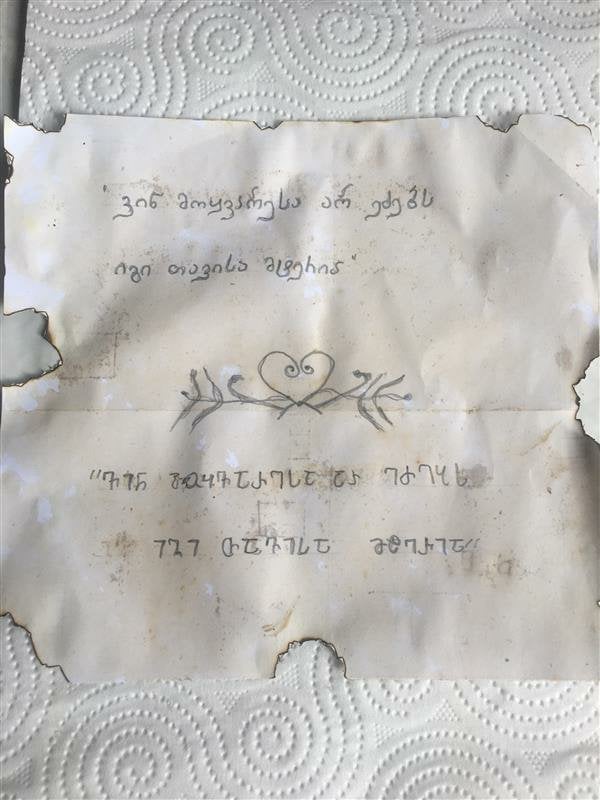 "ვინ მოყვარესა არ ეძებს
იგი თავისა მტერია"
"ⴅⴈⴌ ⴋⴍⴗⴅⴀⴐⴄⴑⴀ ⴀⴐ ⴄⴛⴄⴁⴑ
ⴈⴂⴈ ⴇⴀⴅⴈⴑⴀ ⴋⴒⴄⴐⴈⴀ"